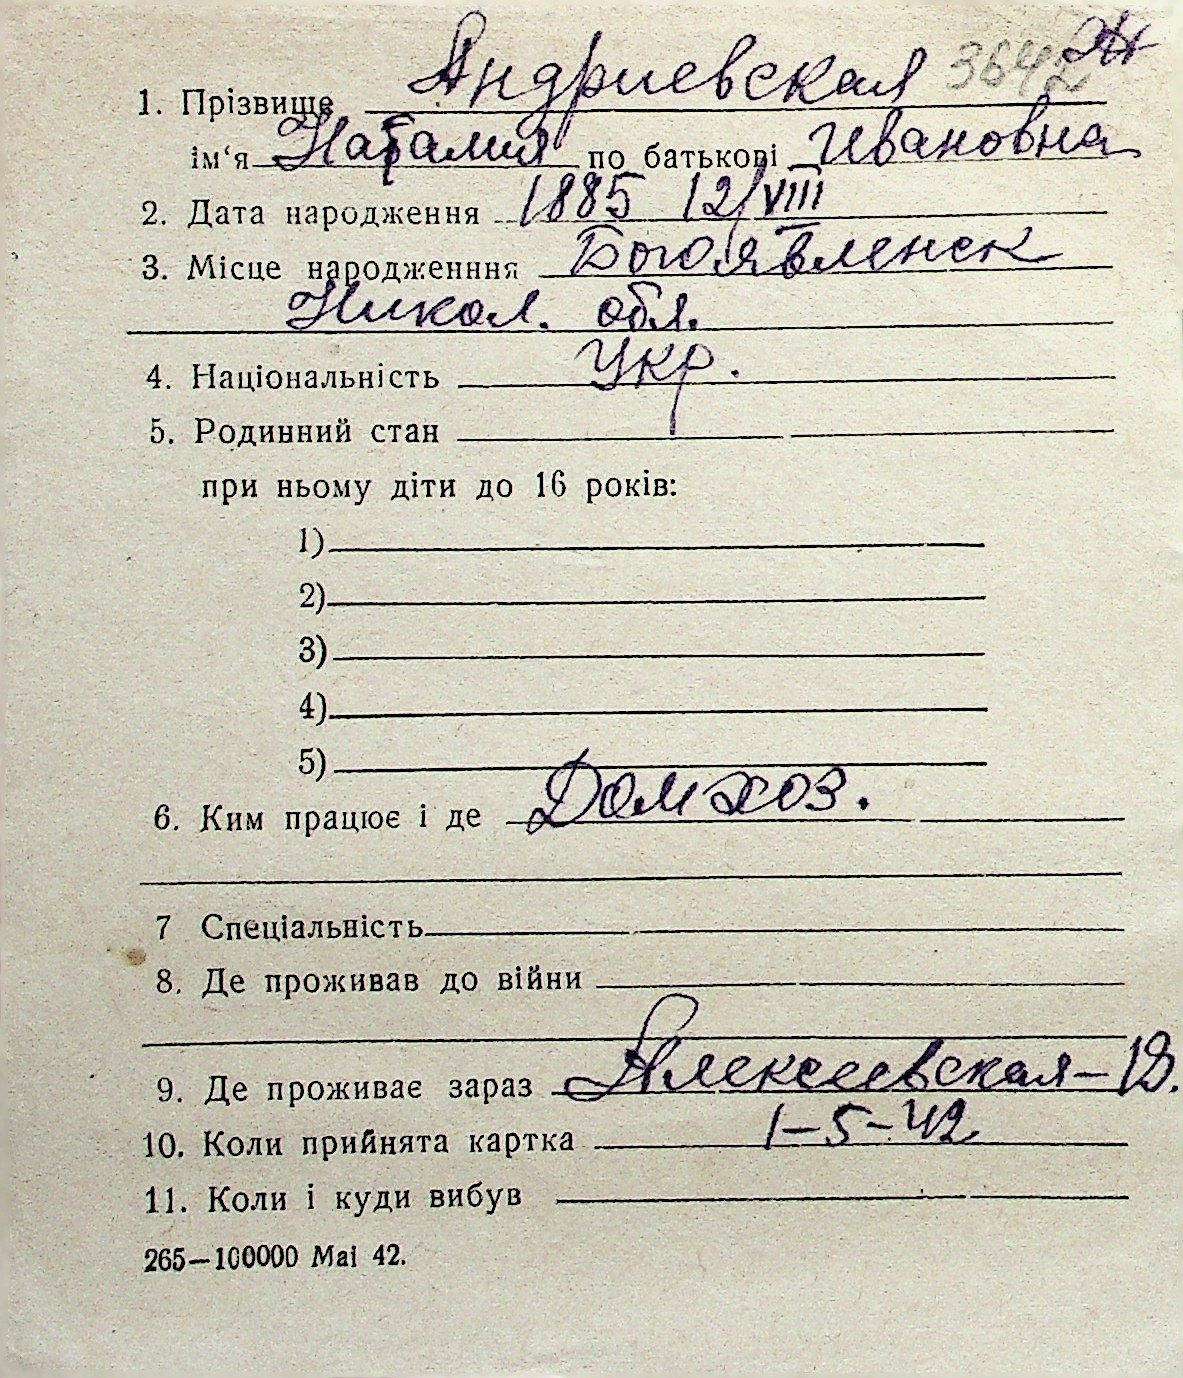 Андриевская 3642
1. Прізвище
ім'я Наталия по батькові Ивановна
2. Дата народження 1885 12/VIII
3. Місце народженння Богоявленск
Никол. обл.
4. Національність Укр.
5. Родинний стан
при ньому діти до 16 років:
1)
2)
3)
4)
5)
6. Ким працює і де Домхоз.
7 Спеціальність
8. Де проживав до війни
9. Де проживає зараз Алексеевская–
10. Коли прийнята картка 1-5-42
11. Коли і куди вибув
265—100000 Mai 42.